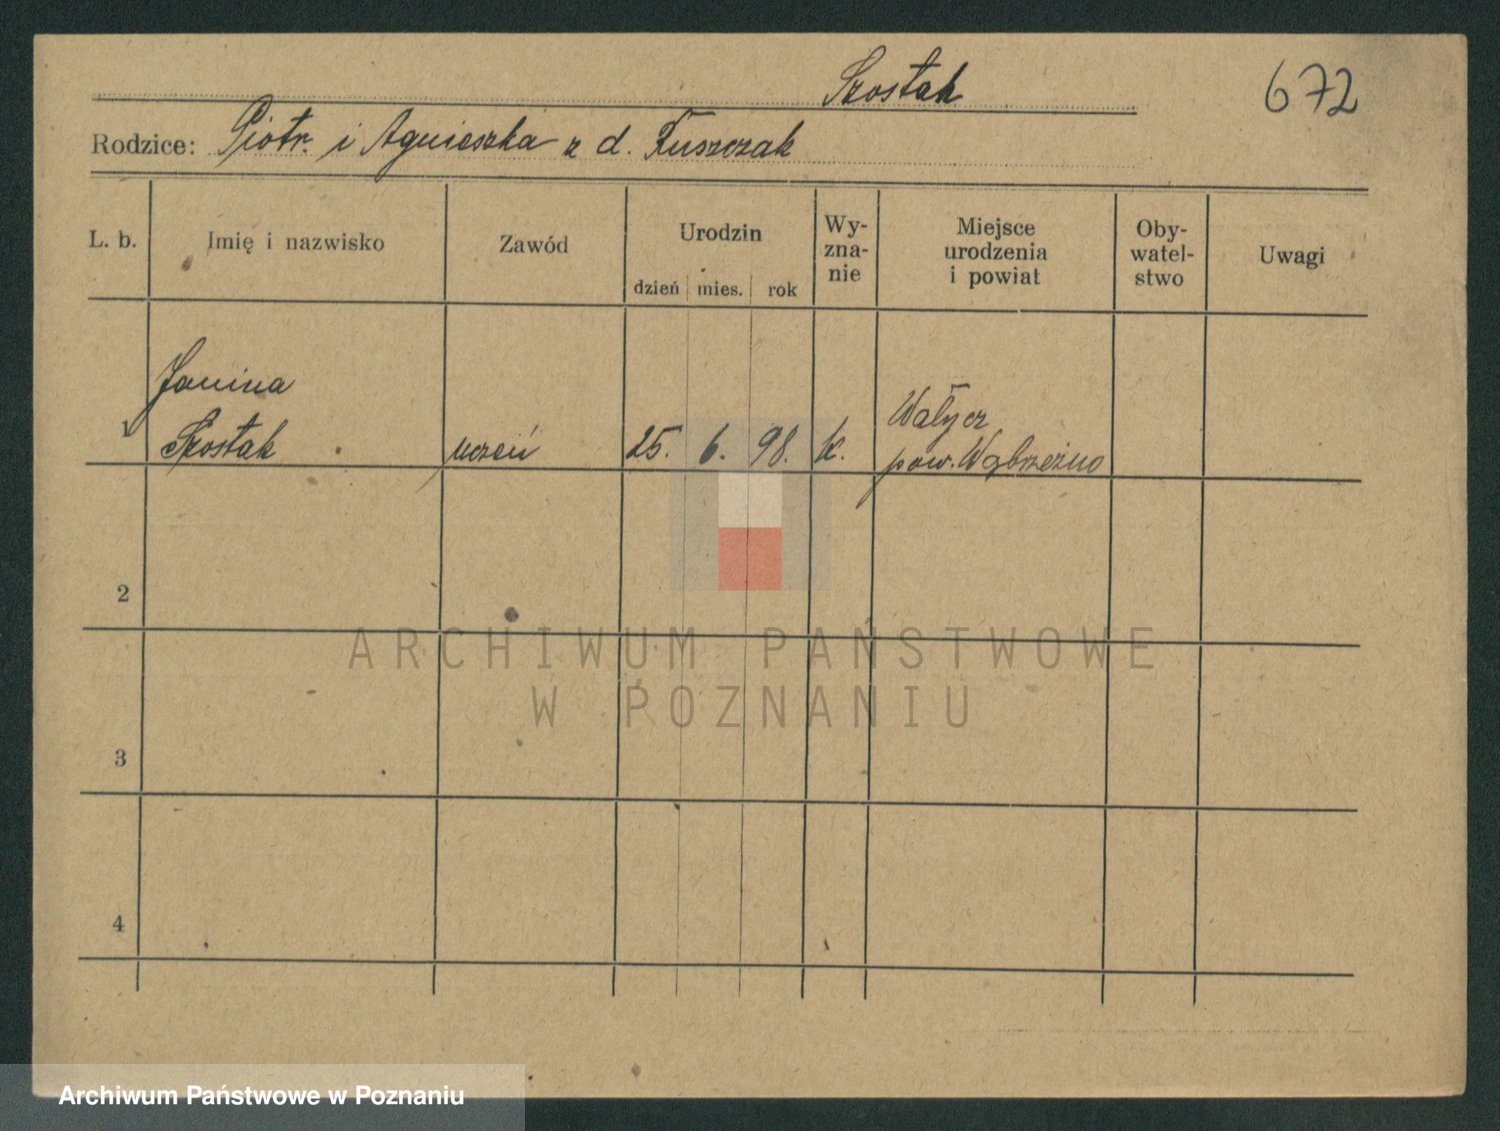 Szostak
672
Rodzice: Piotr i Agnieszka z d. Tuszczak
L. b.
Imię i nazwisko
Zawód
Urodzin
dzień mies. rok
Wy-
zna-
nie
Miejsce
urodzenia
i powiat
Oby-
watel-
stwo
Uwagi
Janina
1 Szostak uczeń 25. 6. 98. k. Wałycz
pow. Wąbrzeźno
2
3
4
ARCHIWUM PAŃSTWOWE
W POZNANIU
Archiwum Państwowe w Poznaniu